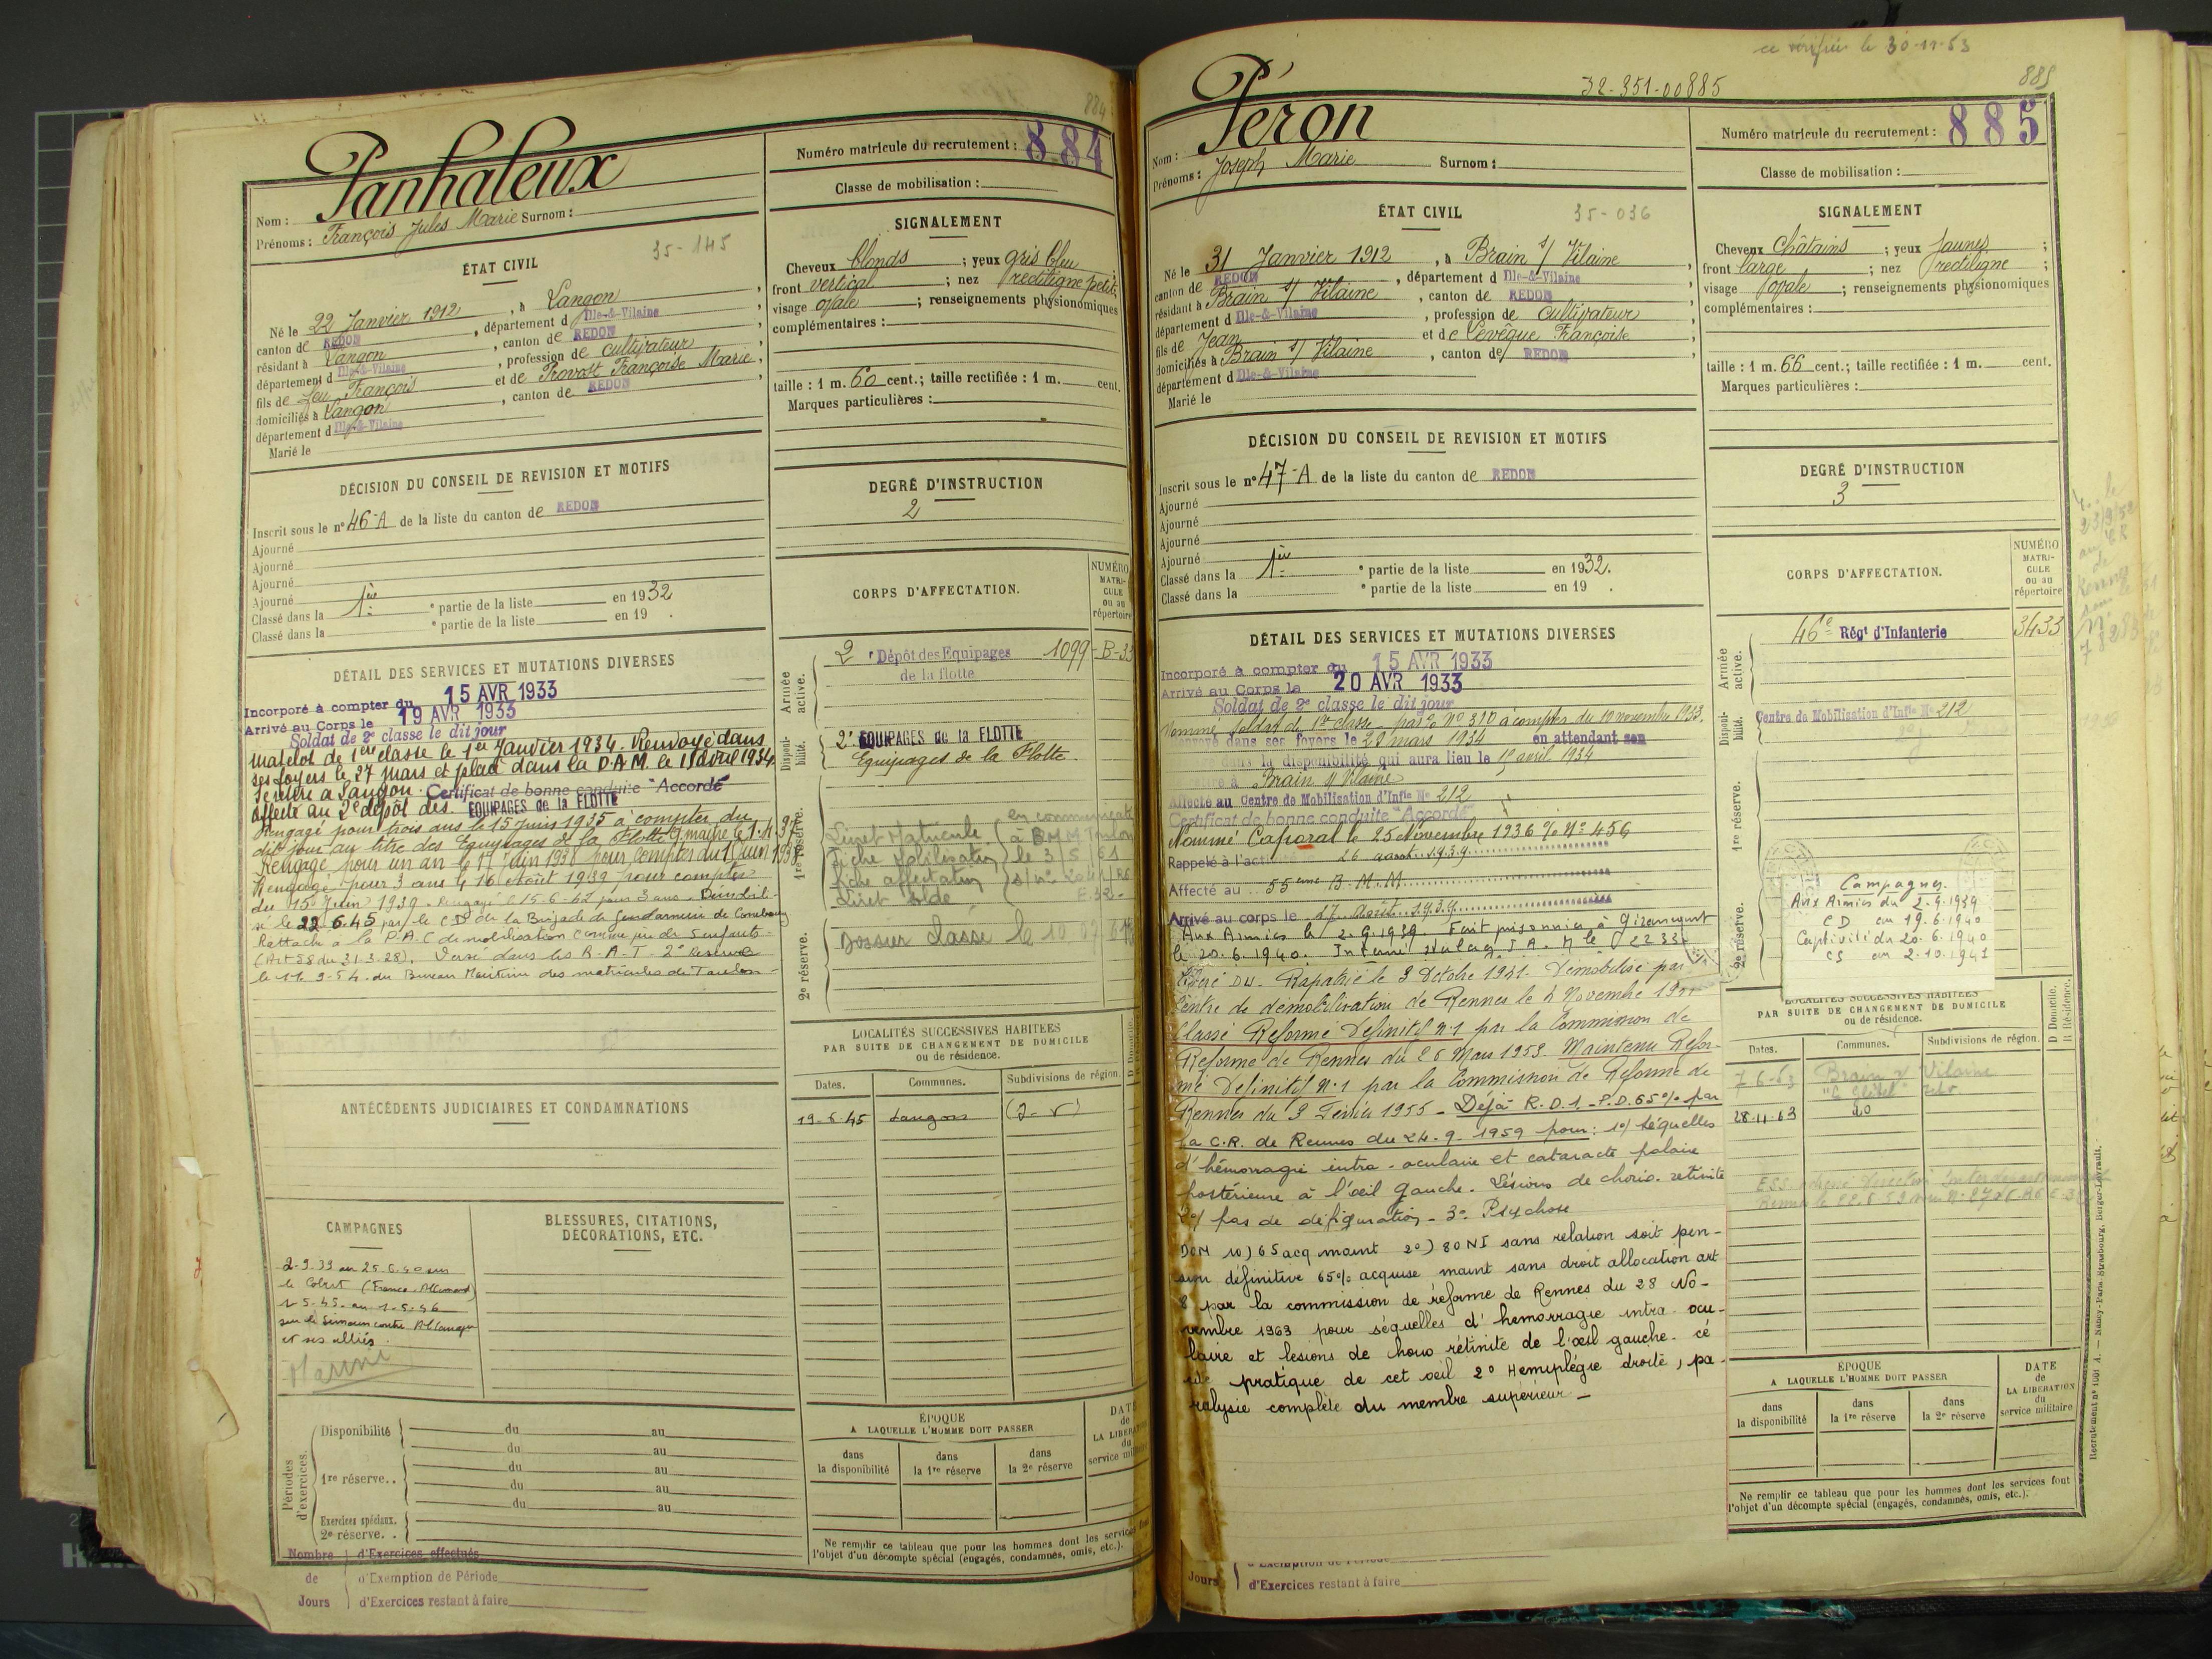 884
Panhaleux
Nom :
Prénoms : François Jules Marie Surnom :
35-145
ÉTAT CIVIL
Né le 22 Janvier 1912, à Langon,
canton de REDON, département d Ille-&-Vilaine
résidant à Langon, canton de REDON,
département d Ille-&-Vilaine, profession de cultivateur
fils de feu François et de Provost Françoise Marie,
domiciliés à Langon, canton de REDON,
département d Ille-&-Vilaine
Marié le
DÉCISION DU CONSEIL DE REVISION ET MOTIFS
Inscrit sous le n° 46-A de la liste du canton de REDON
Ajourné
Ajourné
Ajourné
Ajourné
Classé dans la 1ère partie de la liste en 1932
Classé dans la e partie de la liste en 19 .
DÉTAIL DES SERVICES ET MUTATIONS DIVERSES
Incorporé à compter du 15 AVR 1933
Arrivé au Corps le 19 AVR 1933
Soldat de 2e classe le dit jour
Matelot de 1ère classe le 1er Janvier 1934. Renvoyé dans
ses foyers le 27 Mars et placé dans la D.A.M. le 15 avril 1934.
Se retire à Langon. Certificat de bonne conduite "Accordé"
Affecté au 2e dépôt des EQUIPAGES de la FLOTTE
Rengagé pour trois ans le 15 Juin 1935 à compter du
dit jour au titre des Equipages de la Flotte Q. maître le 1.4.37
Rengagé pour un an le 17 Juin 1938 pour compter du 15 Juin 1938
Rengagé pour 3 ans le 16 Août 1939 pour compter
du 15 Juin 1939. Rengagé le 15-6-42 pour 3 ans
le 22.6.45 par le C.D. de la Brigade de Gendarmerie de
Rattaché à la P.A.C de mobilisation comme père de enfants
(Art 58 du 31.3.28). Versé dans les R.A.T. 2e Réserve
le 11.9-54 du Bureau Maritime des matricules de Toulon
ANTÉCÉDENTS JUDICIAIRES ET CONDAMNATIONS
CAMPAGNES
2-9.39 au 25.6.40 sur
le Colbert (France-Allemand)
sur le Simoun contre Allemagne
et ses alliés
BLESSURES, CITATIONS,
DÉCORATIONS, ETC.
Périodes d'exercices.
Disponibilité du au
du au
1re réserve.. du au
du au
du au
Exercices spéciaux.
2e réserve. .
Nombre d'Exercices effectués
de d'Exemption de Période
Jours d'Exercices restant à faire
Numéro matricule du recrutement : 884
Classe de mobilisation :
SIGNALEMENT
Cheveux blonds ; yeux gris bleu ;
front vertical ; nez rectiligne petit ;
visage ovale ; renseignements physionomiques
complémentaires :
taille : 1 m. 60 cent.; taille rectifiée : 1 m. cent.
Marques particulières :
DEGRÉ D'INSTRUCTION
2
CORPS D'AFFECTATION.
NUMÉRO
MATRI-
CULE
ou au
répertoire
Armée active.
2e Dépôt des Equipages 1099-B-33
de la flotte
Disponibilité.
2e EQUIPAGES de la FLOTTE
Equipages de la Flotte.
1re réserve.
Livret Matricule
fiche mobilisation
fiche affectation
Livret solde
2e réserve.
Dossier classé le 10
LOCALITÉS SUCCESSIVES HABITÉES
PAR SUITE DE CHANGEMENT DE DOMICILE
ou de résidence.
Dates. Communes. Subdivisions de région.
19-6-45 Langon
ÉPOQUE
A LAQUELLE L'HOMME DOIT PASSER
dans la disponibilité
dans la 1re réserve
dans la 2e réserve
Ne remplir ce tableau que pour les hommes dont les services font
l'objet d'un décompte spécial (engagés, condamnés, omis, etc.).
ce vérifié le 30-11-53
32-351-00885
885
Péron
Nom :
Prénoms : Joseph Marie Surnom :
35-036
ÉTAT CIVIL
Né le 31 Janvier 1912, à Brain s/ Vilaine,
canton de REDON, département d Ille-&-Vilaine
résidant à Brain s/ Vilaine, canton de REDON
département d Ille-&-Vilaine, profession de cultivateur
fils de Jean et de Levêque Françoise
domiciliés à Brain s/ Vilaine, canton de REDON
département d Ille-&-Vilaine
Marié le
DÉCISION DU CONSEIL DE REVISION ET MOTIFS
Inscrit sous le n° 47-A de la liste du canton de REDON
Ajourné
Ajourné
Ajourné
Ajourné
Classé dans la 1ère partie de la liste en 1932.
Classé dans la e partie de la liste en 19 .
DÉTAIL DES SERVICES ET MUTATIONS DIVERSES
Incorporé à compter du 15 AVR 1933
Arrivé au Corps le 20 AVR 1933
Soldat de 2e classe le dit jour
Nommé soldat de 1re classe par No 310 à compter du 10 novembre 1933.
dans ses foyers le 29 mars 1934 en attendant son
dans la disponibilité qui aura lieu le 15 avril 1934
à Brain s/ Vilaine
Affecté au Centre de Mobilisation d'Infie No 212
Certificat de bonne conduite "Accordé"
Nommé Caporal le 25 Novembre 1936 No 456
Rappelé à l'act 26 août 1939
Affecté au 55ème B.M.M.
Arrivé au corps le 17 août 1939
Aux Armées le 2.9.1939. Fait prisonnier à Gironcourt
le 20.6.1940. Interné Stalag
Libéré DU. Rapatrié le 3 Octobre 1941. Démobilisé par
Centre de démobilisation de Rennes le 4 Novembre 1941
Classé Réformé Définitif n°1 par la Commission de
Réforme de Rennes du 26 Mars 1953. Maintenu Réfor-
mé Définitif N°1 par la Commission de Réforme de
Rennes du 3 Février 1955 - Déjà R.D.1.-P.D.65% par
la C.R. de Rennes du 24.9.1959 pour: 1°/ Séquelles
d'hémorragie intra-oculaire et cataracte polaire
postérieure à l'œil gauche. Lésions de chorio-retinite
2°/ pas de défiguration - 3° Psychose
DOM 1°) 65 acq maint 2°) 80 NI sans relation soit pen-
sion définitive 65% acquise maint sans droit allocation art
8 par la commission de réforme de Rennes du 28 No-
vembre 1963 pour séquelles d'hemorragie intra-ocu-
laire et lesions de horio rétinite de l'œil gauche. cé
cité pratique de cet œil 2° Hemiplégie droite, pa-
ralysie complète du membre supérieur -
Jours d'Exercices restant à faire
Numéro matricule du recrutement : 885
Classe de mobilisation :
SIGNALEMENT
Cheveux Châtains ; yeux Jaunes ;
front large ; nez rectiligne ;
visage ovale ; renseignements physionomiques
complémentaires :
taille : 1 m. 66 cent.; taille rectifiée : 1 m. cent.
Marques particulières :
DEGRÉ D'INSTRUCTION
3
CORPS D'AFFECTATION.
NUMÉRO
MATRI-
CULE
ou au
répertoire
Armée active.
46e Régt d'Infanterie 3433
Disponibilité.
Centre de Mobilisation d'Infie No 212
1re réserve.
2e réserve.
Campagnes.
Aux Armées du 2.9.1939
CD au 19.6.1940
Captivité du 20.6.1940
CS au 2.10.1941
LOCALITÉS SUCCESSIVES HABITÉES
PAR SUITE DE CHANGEMENT DE DOMICILE
ou de résidence.
D Domicile.
R Résidence.
Dates. Communes. Subdivisions de région.
7-6-63 Brain s/ Vilaine
28-11-63 do
ÉPOQUE
A LAQUELLE L'HOMME DOIT PASSER
dans la disponibilité
dans la 1re réserve
dans la 2e réserve
DATE
de
LA LIBÉRATION
du
service militaire
Ne remplir ce tableau que pour les hommes dont les services font
l'objet d'un décompte spécial (engagés, condamnés, omis, etc.).
Recrutement n° 1091 A. — Nancy-Paris-Strasbourg, Berger-Levrault.